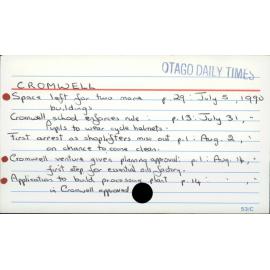 OTAGO DAILY TIMES
CROMWELL
Space left for two more p.29: July 5, 1990
buildings
Cromwell school enforces rule: p.13: July 31, "
Pupils to wear cycle helmets.
First arrest as shoplifters miss out p.1: Aug. 2, "
on chance to come clean.
Cromwell venture given planning approval: p.1: Aug. 14, "
first step for essential oils factory.
Application to build processing plant p.14: " " "
in Cromwell approved
53/C